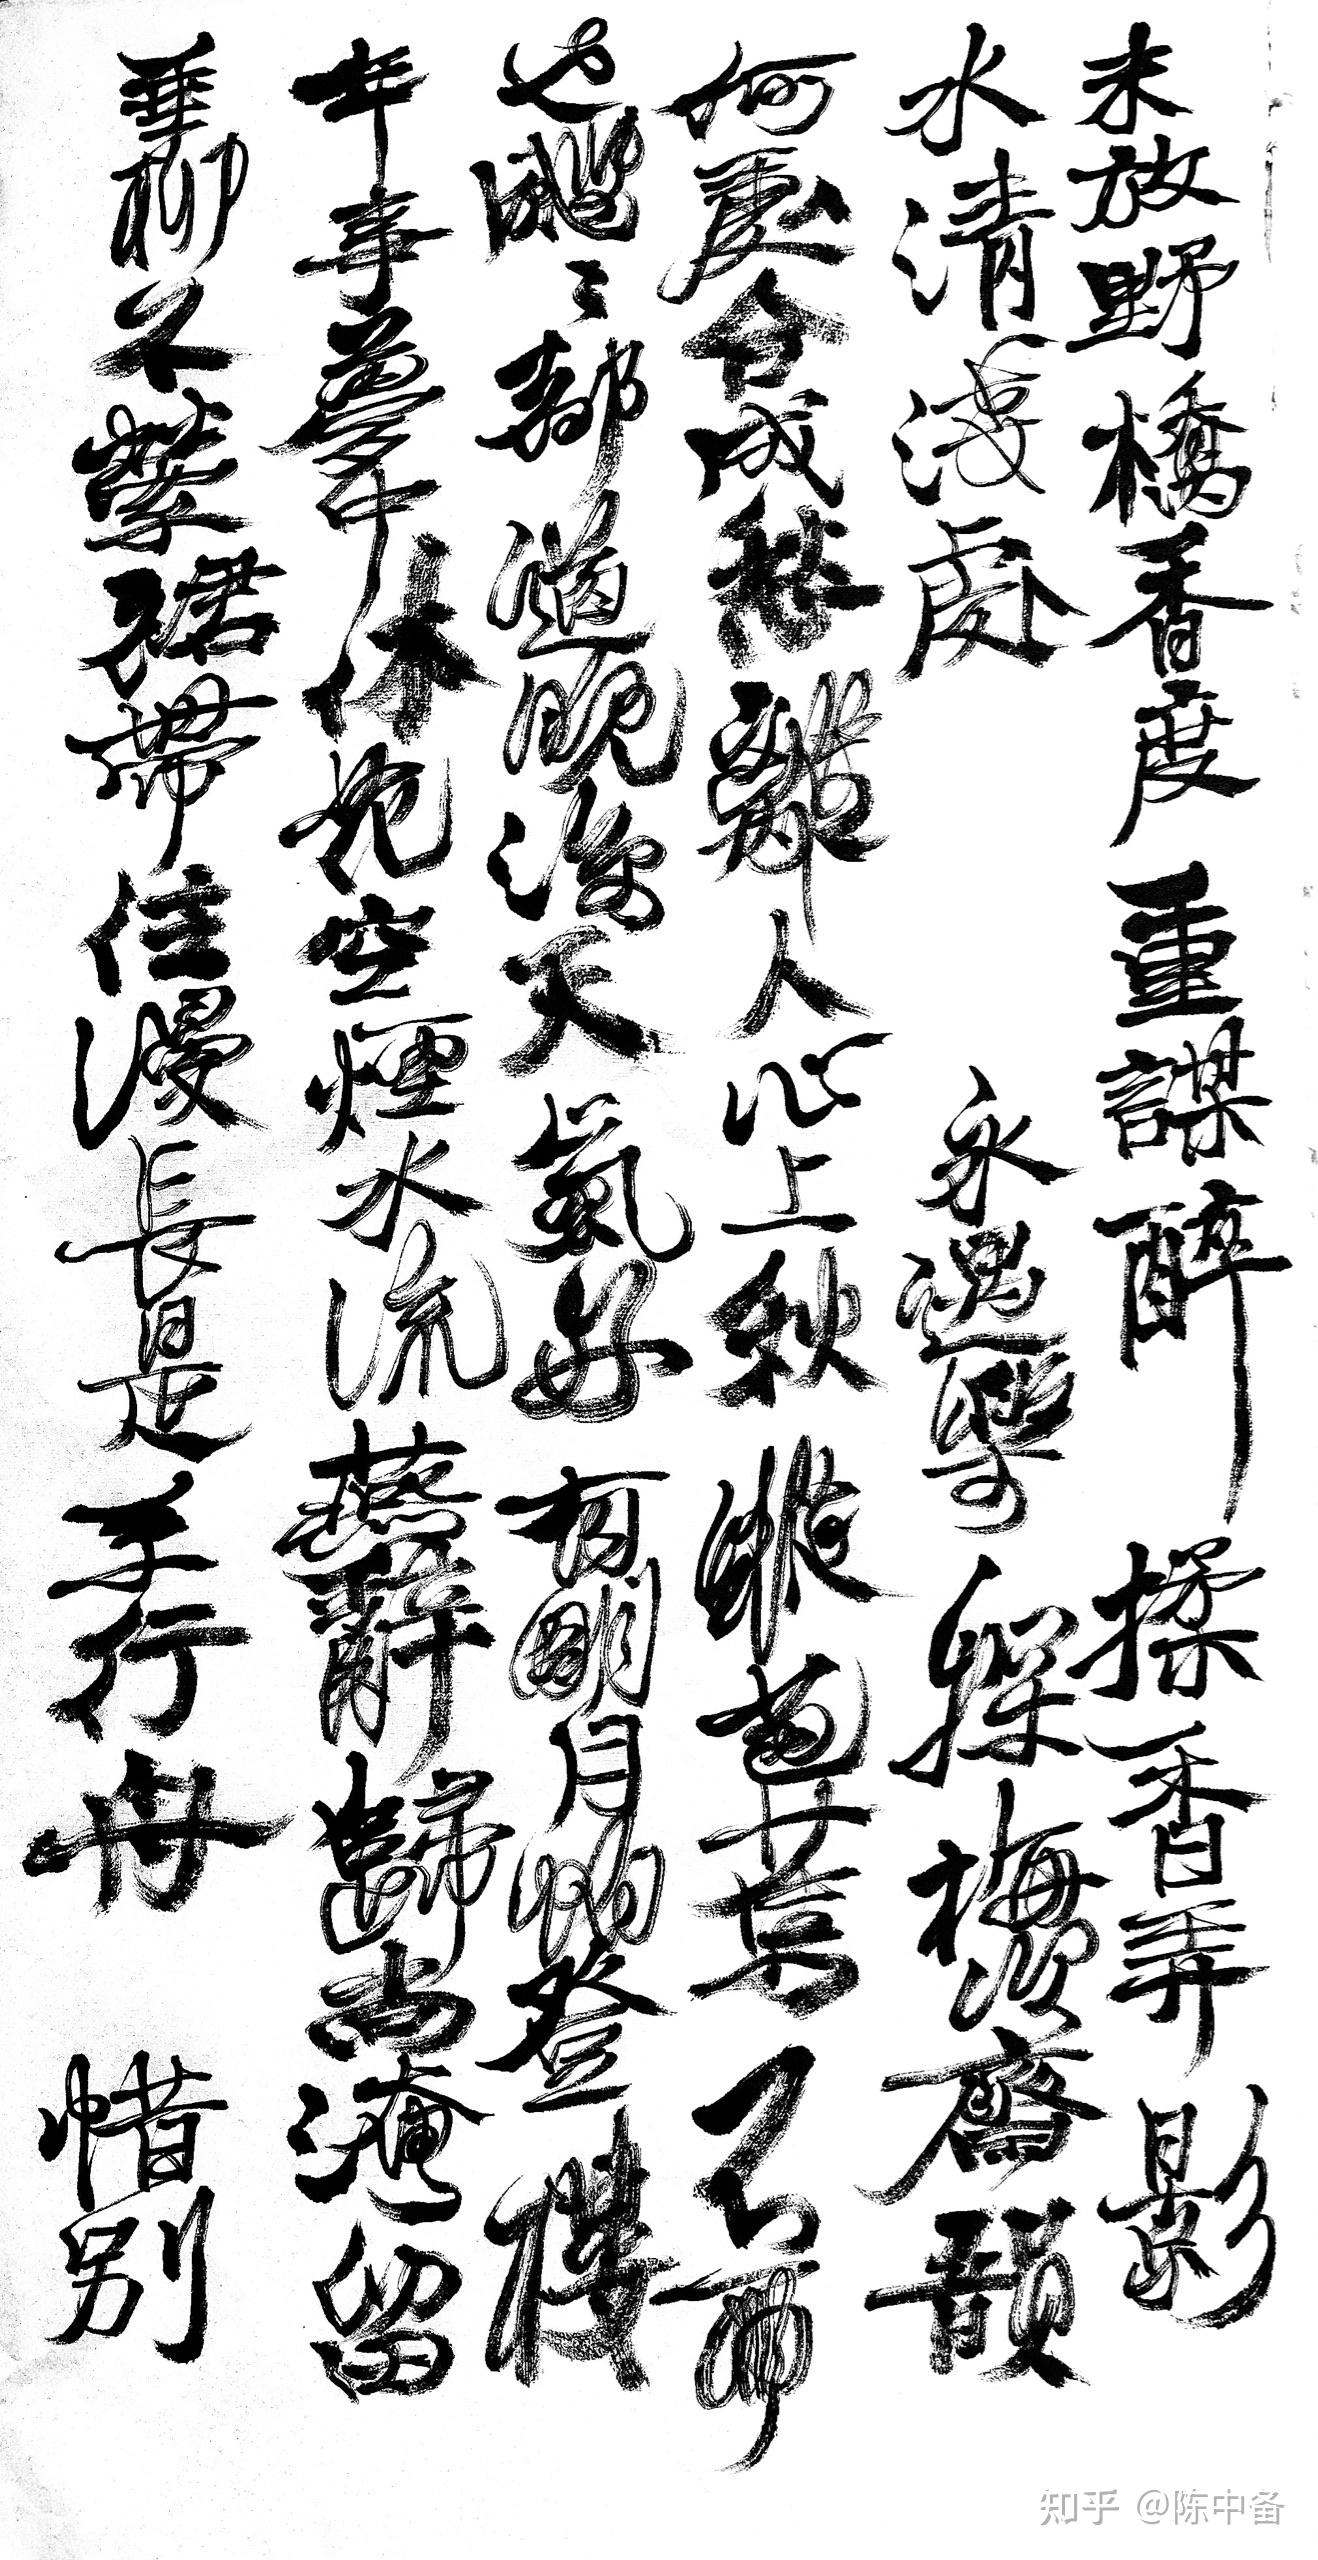 未放野橋香度 重謀醉 揉香弄影
水清淺處 永遇樂 探梅次齋韻
何處合成愁離人心上秋 縱芭蕉 不雨
也颼々都道晚涼天氣好 有明月怕登樓
年事夢中休花空煙水流燕辭歸尚淹留
垂柳不縈裙帶住漫長是系行舟 惜別
知乎 @陈中备